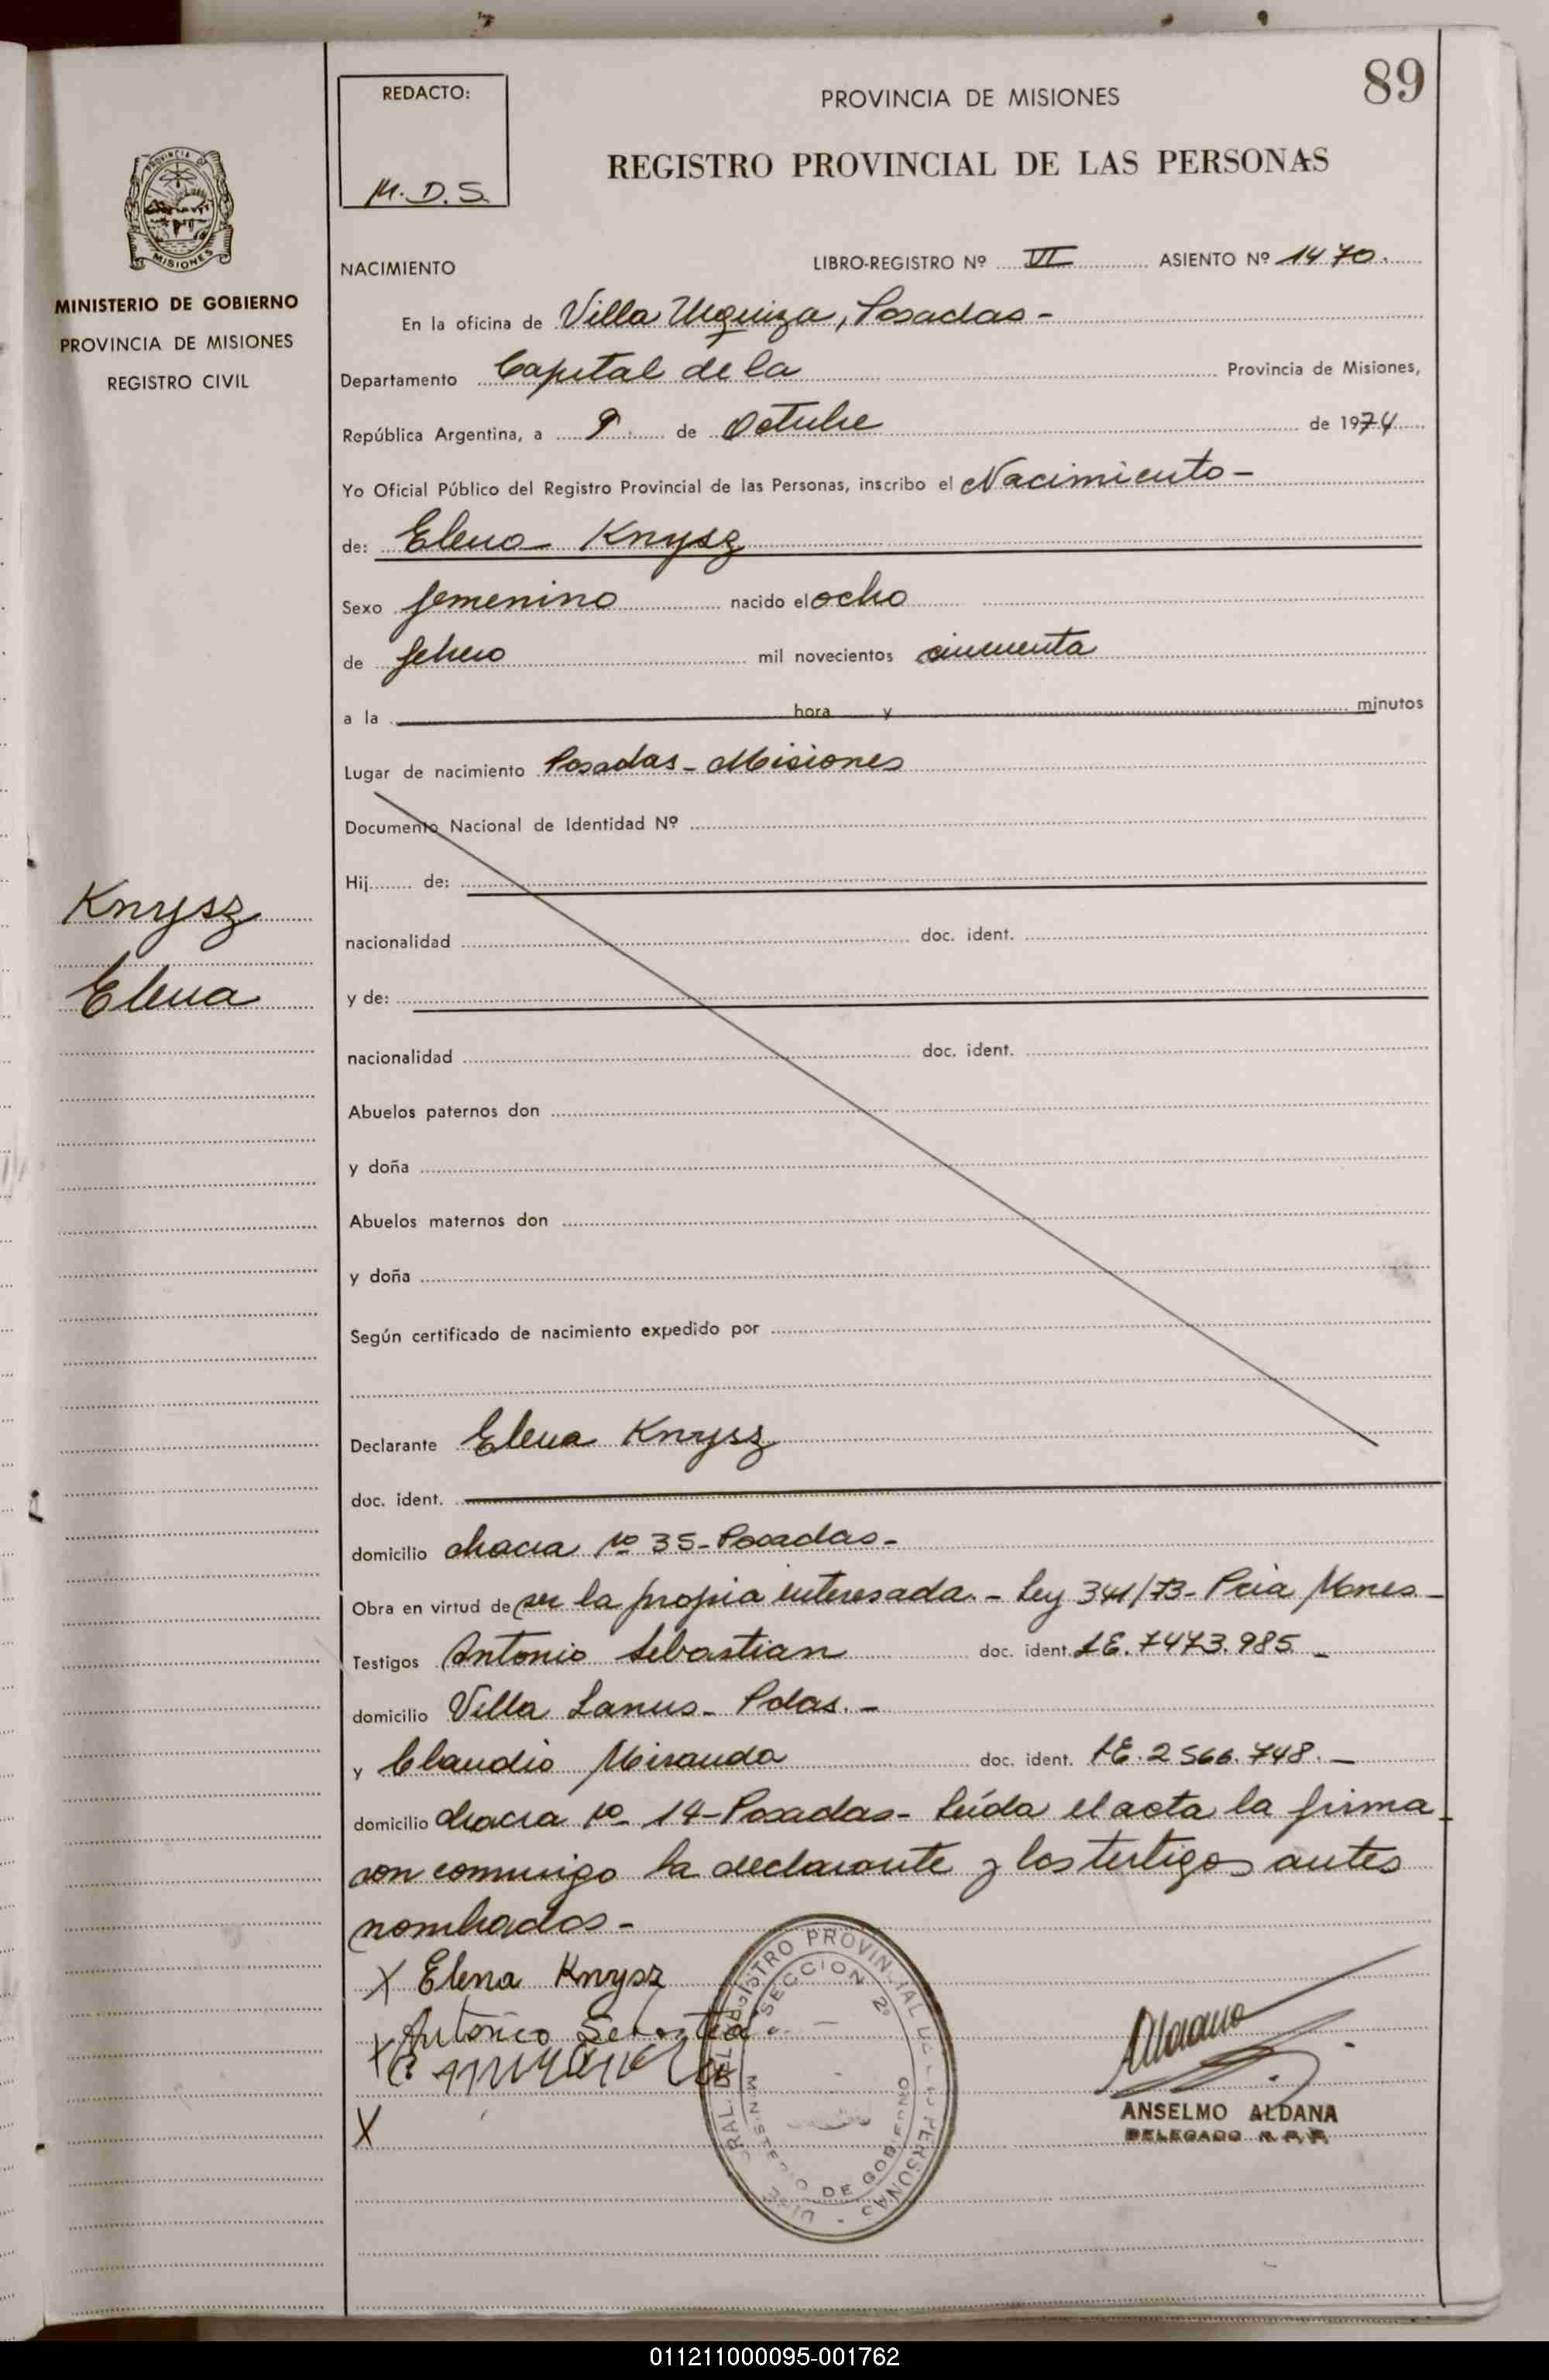 89
REDACTO:
M. D. S.
PROVINCIA DE MISIONES
REGISTRO PROVINCIAL DE LAS PERSONAS
PROVINCIA DE
MISIONES
MINISTERIO DE GOBIERNO
PROVINCIA DE MISIONES
REGISTRO CIVIL
Knysz
Elena
NACIMIENTO LIBRO-REGISTRO Nº VI ASIENTO Nº 1470.
En la oficina de Villa Urquiza, Posadas -
Departamento Capital de la Provincia de Misiones,
República Argentina, a 9 de Octubre de 1974
Yo Oficial Público del Registro Provincial de las Personas, inscribo el Nacimiento -
de: Elena Knysz
Sexo femenino nacido el ocho
de febrero mil novecientos cincuenta
a la hora y minutos
Lugar de nacimiento Posadas - Misiones
Documento Nacional de Identidad Nº
Hij de:
nacionalidad doc. ident.
y de:
nacionalidad doc. ident.
Abuelos paternos don
y doña
Abuelos maternos don
y doña
Según certificado de nacimiento expedido por
Declarante Elena Knysz
doc. ident.
domicilio chacra nº 35 - Posadas -
Obra en virtud de ser la propia interesada. - Ley 341/73 - Pcia Mnes -
Testigos Antonio Sebastian doc. ident. LE. 7473.985 -
domicilio Villa Lanus - Pdas. -
y Claudio Miranda doc. ident. LE. 2566.748. -
domicilio chacra nº 14 - Posadas - Leída el acta la firma
ron conmigo la declarante y los testigos antes
nombrados -
X Elena Knysz
X Antonico Sebastia
C Miranda
X
REGISTRO PROVINCIAL DE LAS PERSONAS
SECCION 2º
MINISTERIO DE GOBIERNO
Aldana
ANSELMO ALDANA
DELEGADO R. P. P.
011211000095-001762